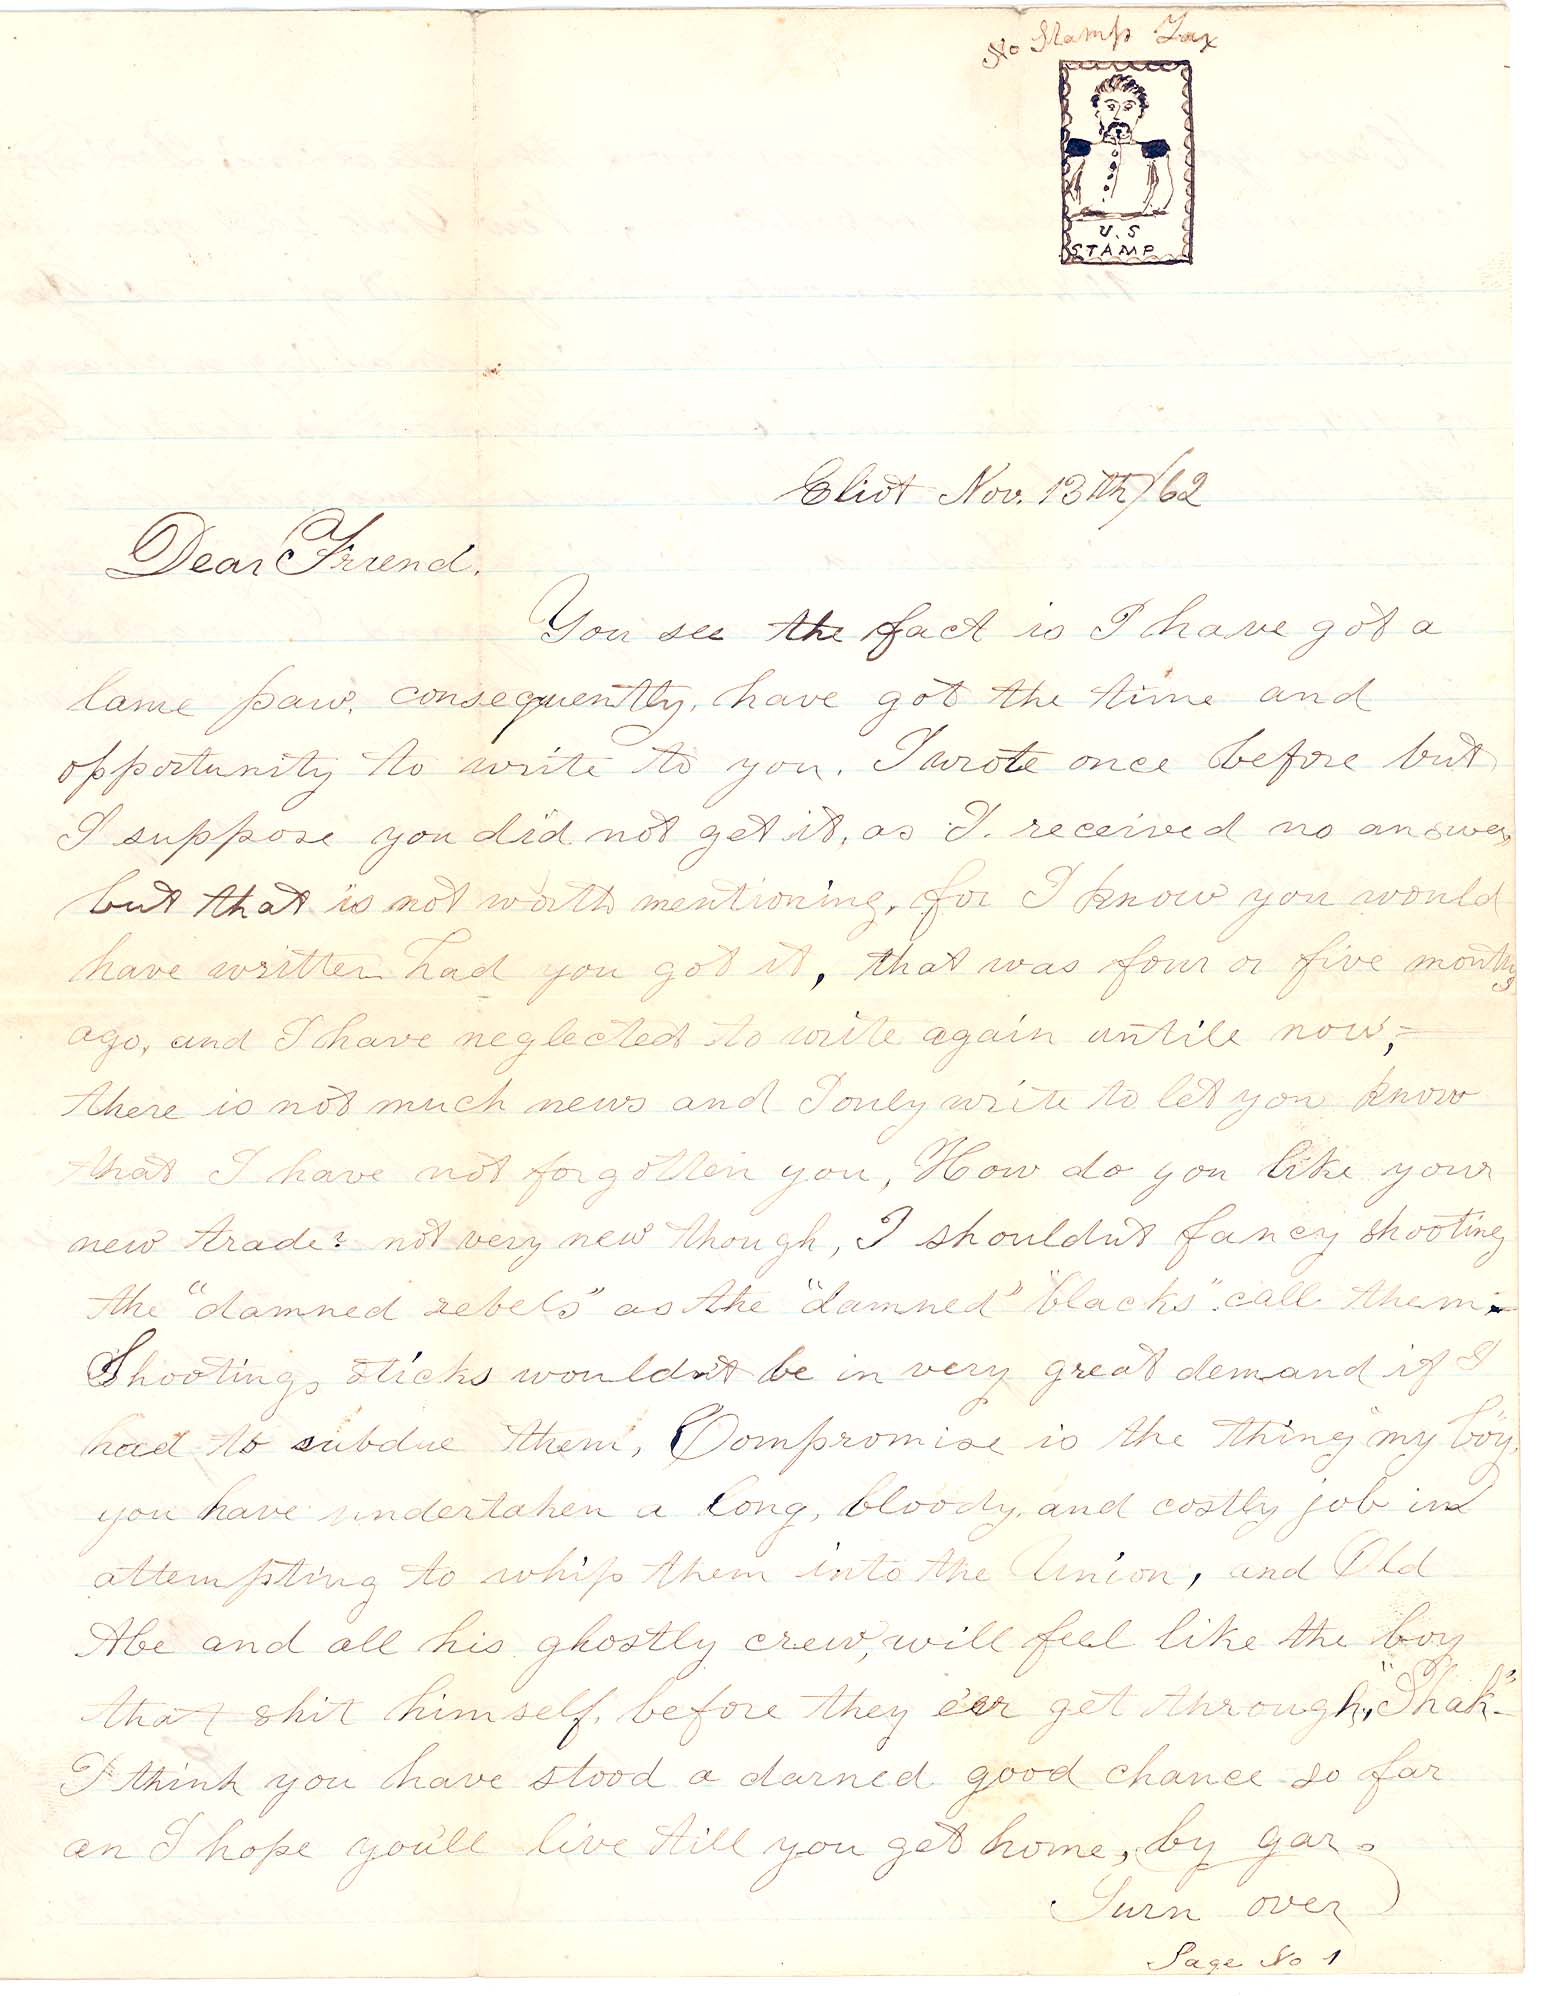 No Stamp Tax
U.S
STAMP
Eliot Nov. 13th/62
Dear Friend.
You see the fact is I have got a
lame paw. consequently, have got the time and
opportunity to write to you. I wrote once before but
I suppose you did not get it, as I received no answer,
but that is not worth mentioning, for I know you would
have written had you got it, that was four or five months
ago, and I have neglected to write again untile now,=
there is not much news and I only write to let you know
that I have not forgotten you, How do you like your
new trade? not very new though, I shouldn't fancy shooting
the "damned rebels" as the "damned" "blacks" call them,-
Shooting sticks wouldn't be in very great demand if I
had to subdue them, Compromise is the "thing" my boy,
you have undertaken a long, bloody, and costly job in
attempting to whip them into the Union, and Old
Abe and all his ghostly crew, will feel like the boy
that shit himself, before they e'er get through, "Shak"-
I think you have stood a darned good chance so far
an I hope you'll live till you get home, by gar.
Turn over
Page No 1